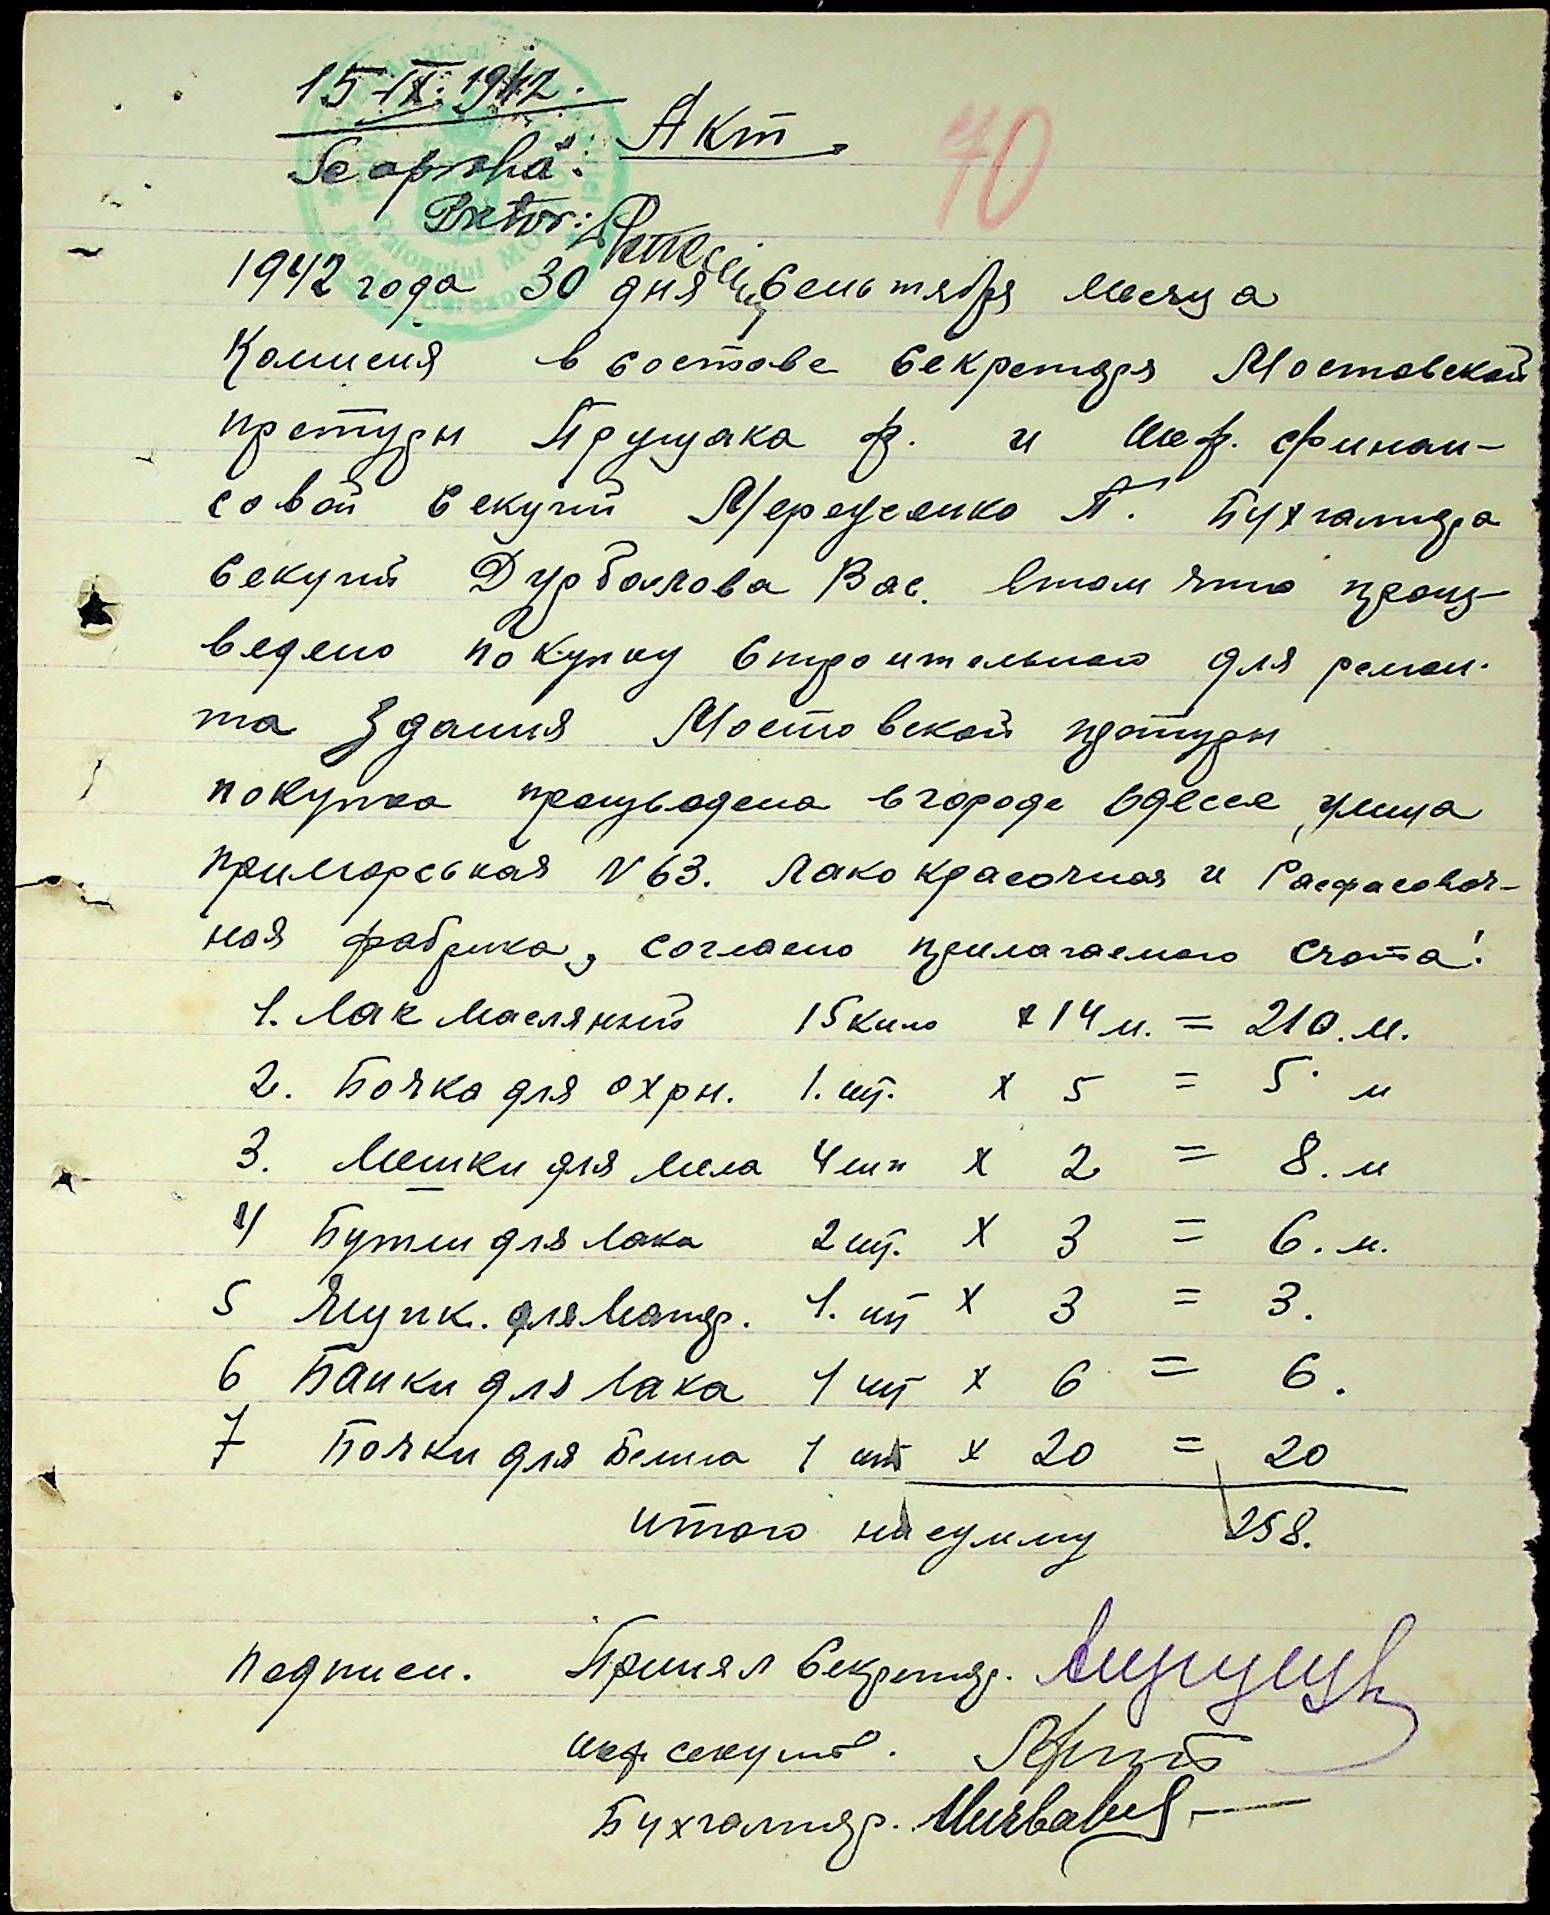 15-IX-1942.
Se aprobă:
Акт
40
Pretor:
1942 года 30 дня Сентября месяца
Комисия в составе Секретаря Мостовской
претуры Прущака Ф. и шеф. финан-
совой секуции Мереженко П. Бухгалтера
секуции Дурбалова Вас. втом что произ-
ведено покупку строительного для ремон-
та здания Мостовской претуры
покупка произведена в городе Одессе, улица
Приморськая N 63. Лако красочная и Расфасовоч-
ная фабрика, согласно прилагаемого счота:
1. Лак масляный 15 кило х 14 м. = 210. м.
2. Бочка для охры. 1. шт. х 5 = 5. м
3. Мешки для мела 4 шт х 2 = 8. м
4 Бутли для лака 2 шт. х 3 = 6. м.
5 Ящик. для матер. 1. шт х 3 = 3.
6 Банки для лака 1 шт х 6 = 6.
7 Бочки для белила 1 шт х 20 = 20
итого на сумму 258.
Подписи. Принял Секретар.
шеф секуции.
Бухгалтер.